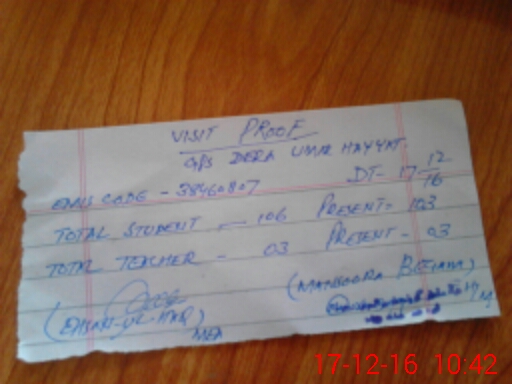 VISIT PROOF
G/S DERA UMAR HAYYAT.
EMIS CODE - 38460807 DT- 17 12/16
TOTAL STUDENT - 106 PRESENT- 103
TOTAL TEACHER - 03 PRESENT - 03
(EHSAN-UL-HAQ) (MANSOORA BEGAM)
MEA
17-12-16 10:42